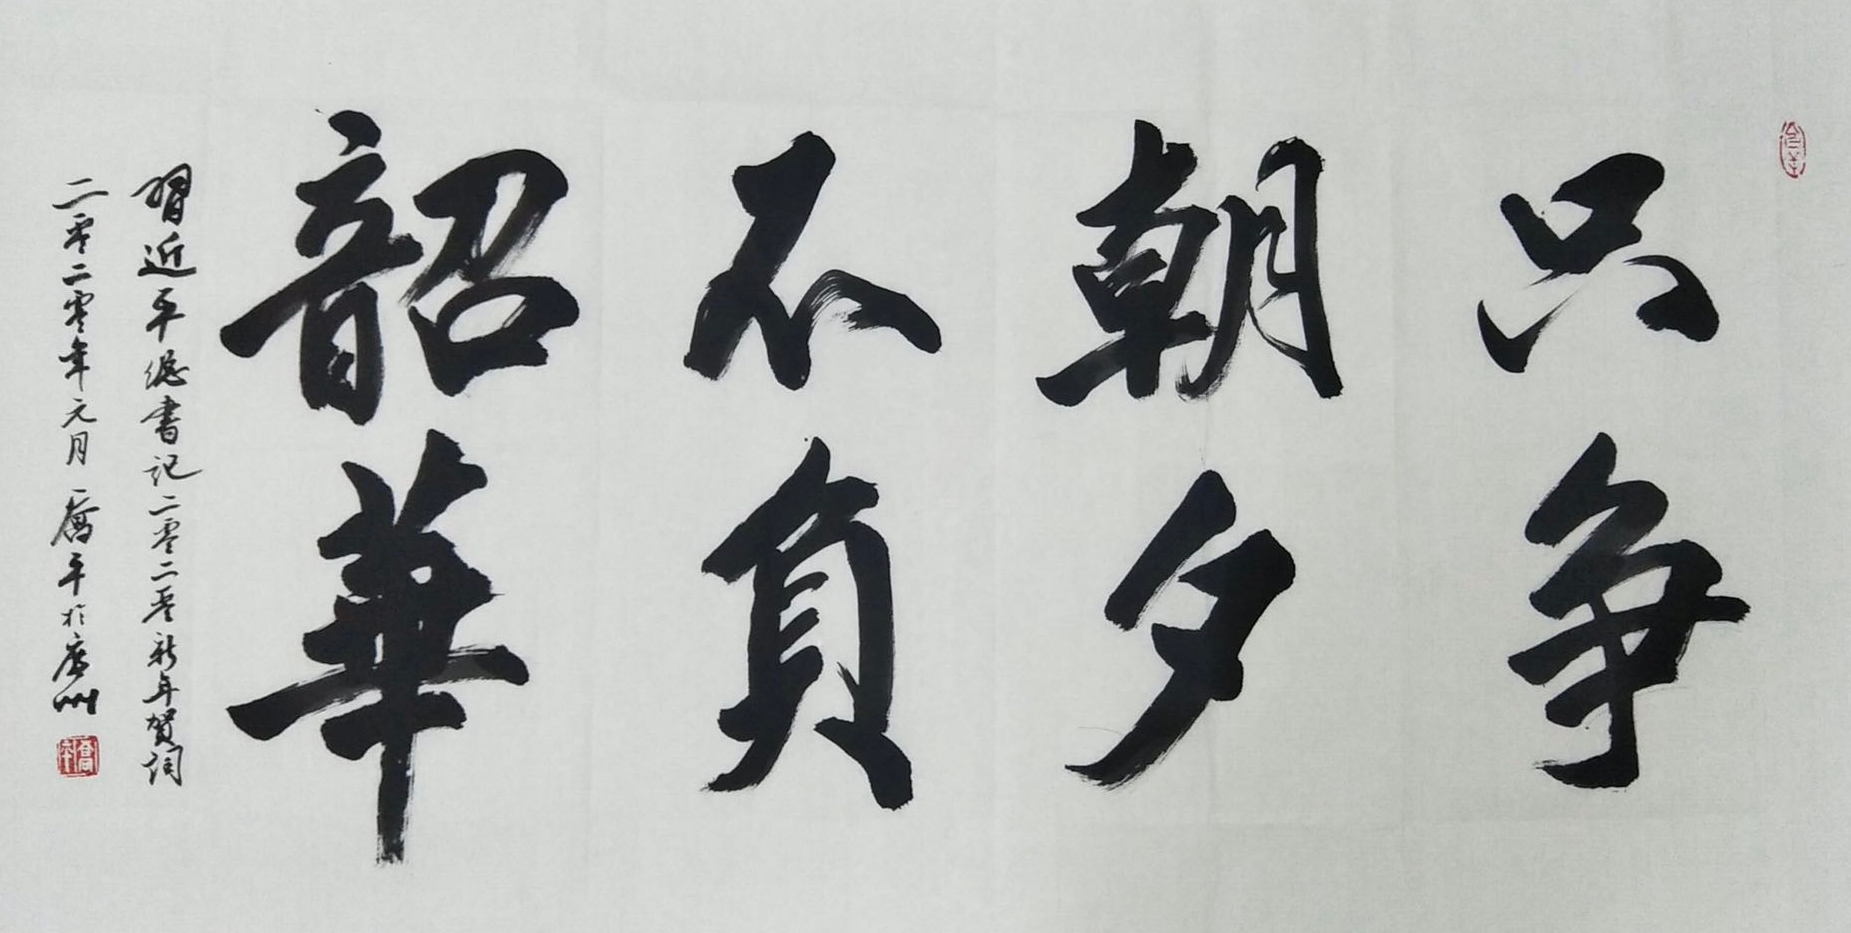 只争
朝夕
不负
韶華
習近平總書记二零二零新年賀词
二零二零年元月喬平於廣州
喬平